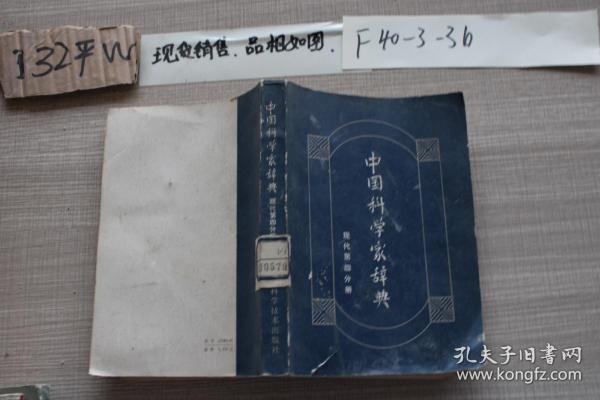 现货销售、品相如图.
F40-3-3b
中国科学家辞典
现代第四分册
中国科学家辞典
现代第四分
科学技术出版社
孔夫子旧书网
www.kongfz.com